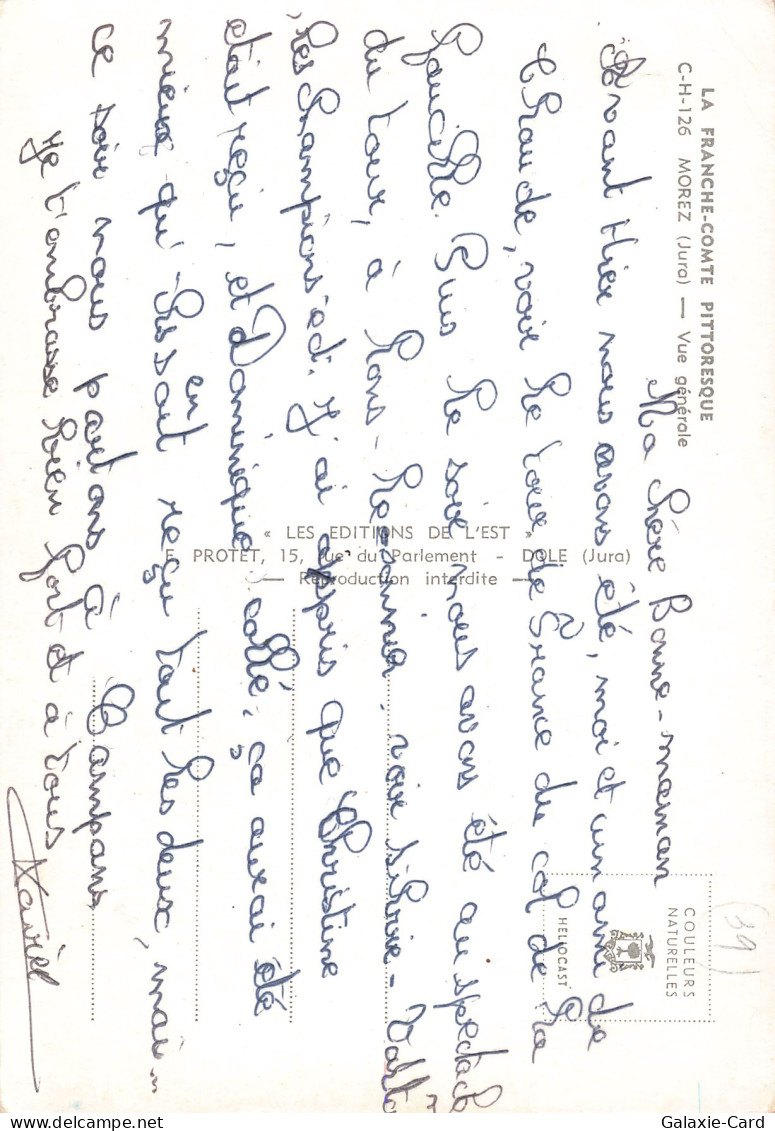 LA FRANCHE-COMTE PITTORESQUE
C-H-126 MOREZ (Jura) — Vue générale
COULEURS
NATURELLES
HELIOCAST
(39)
Ma chère Bonne-maman
Avant Hier nous avons été, moi et un ami de
Claude, voir le tour de France du col de la
Faucille. Puis le soir nous avons été au spectacle
du tour, à Lons-le-saunier, voir Silvie-Varta
les Champions ect. J'ai appris que Christine
était reçu, et Dominique collé, ça aurai été
mieux qu'-ils soit en reçu tout les deux, mais
ce soir nous partons à Campans
Je t'embrasse bien fort et à tous
Xavier
« LES EDITIONS DE L'EST »
F. PROTET, 15, rue du Parlement - DOLE (Jura)
— Reproduction interdite —
Galaxie-Card